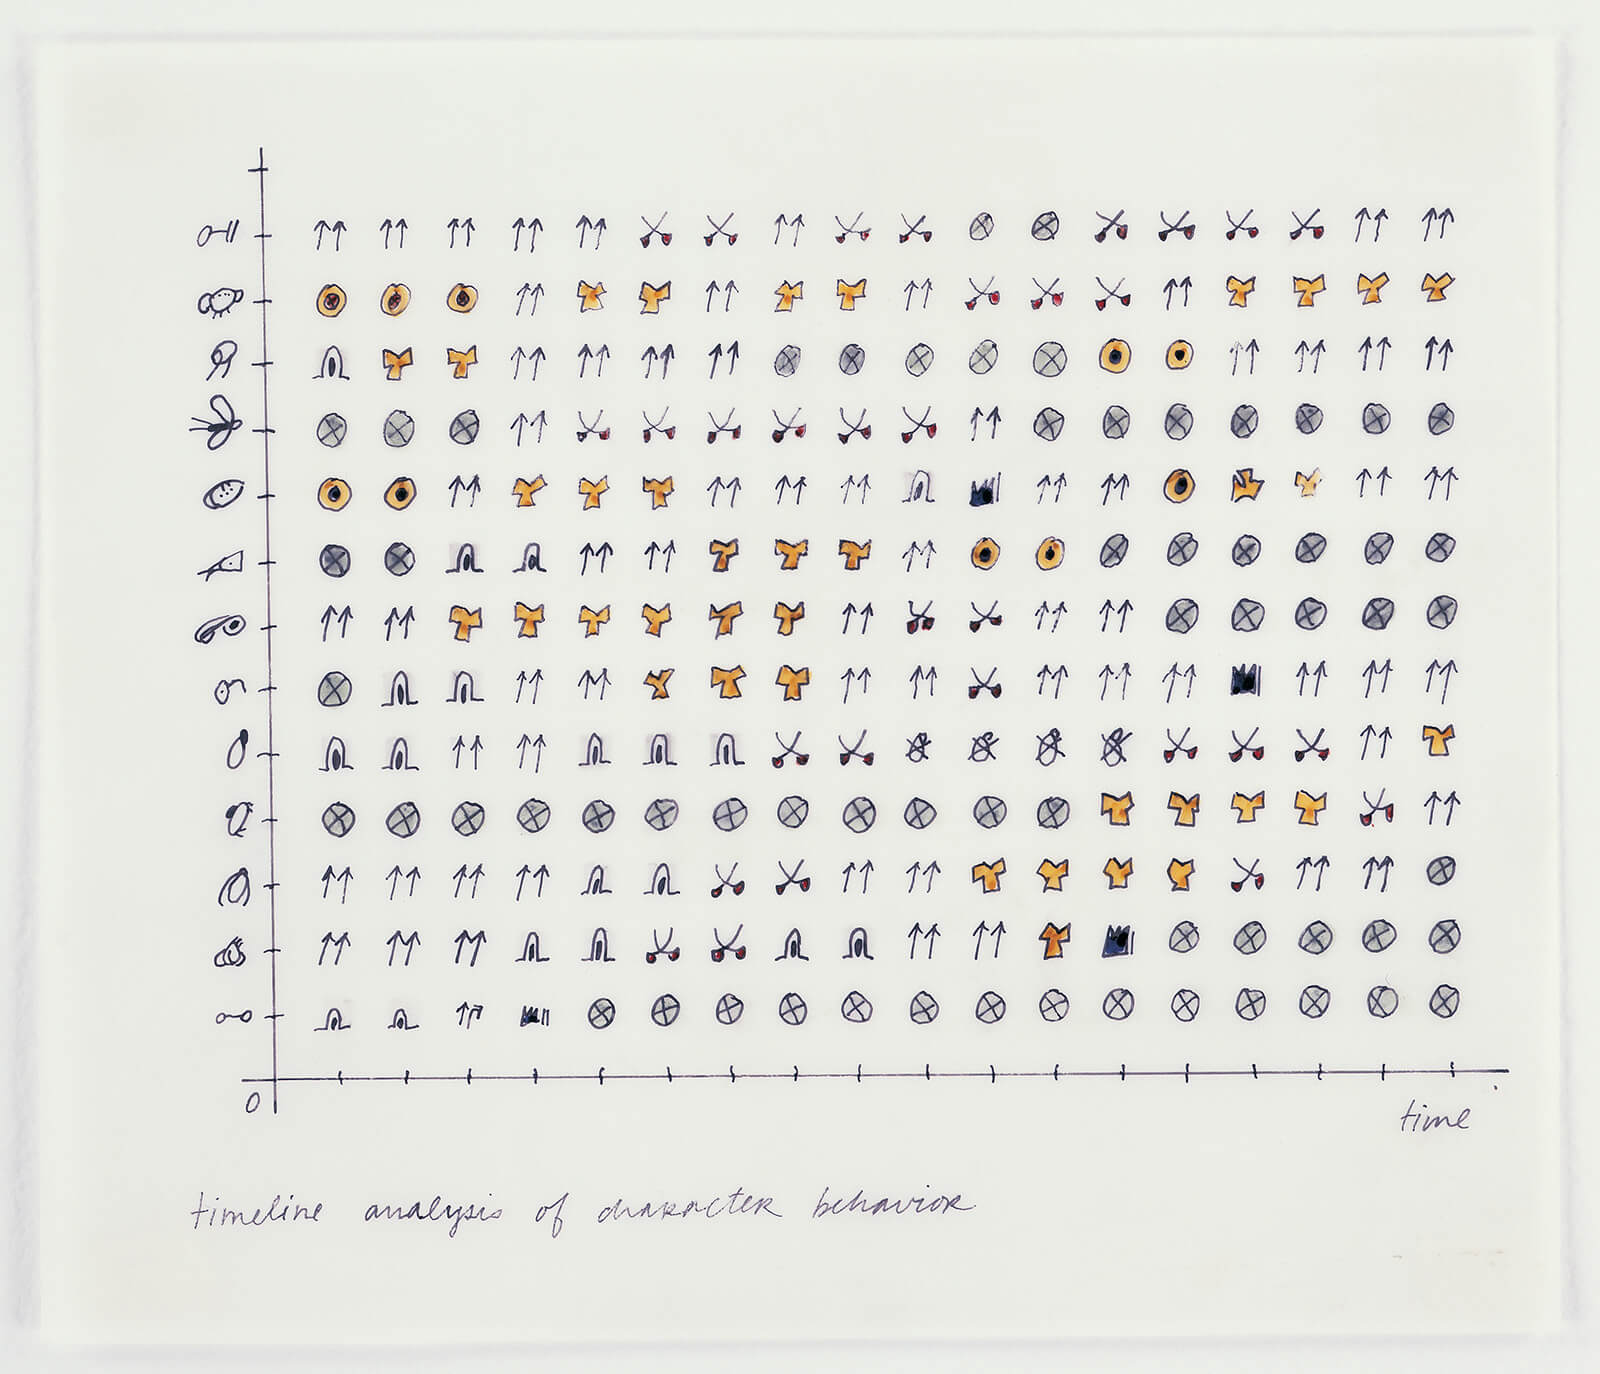 0
time
timeline analysis of character behavior